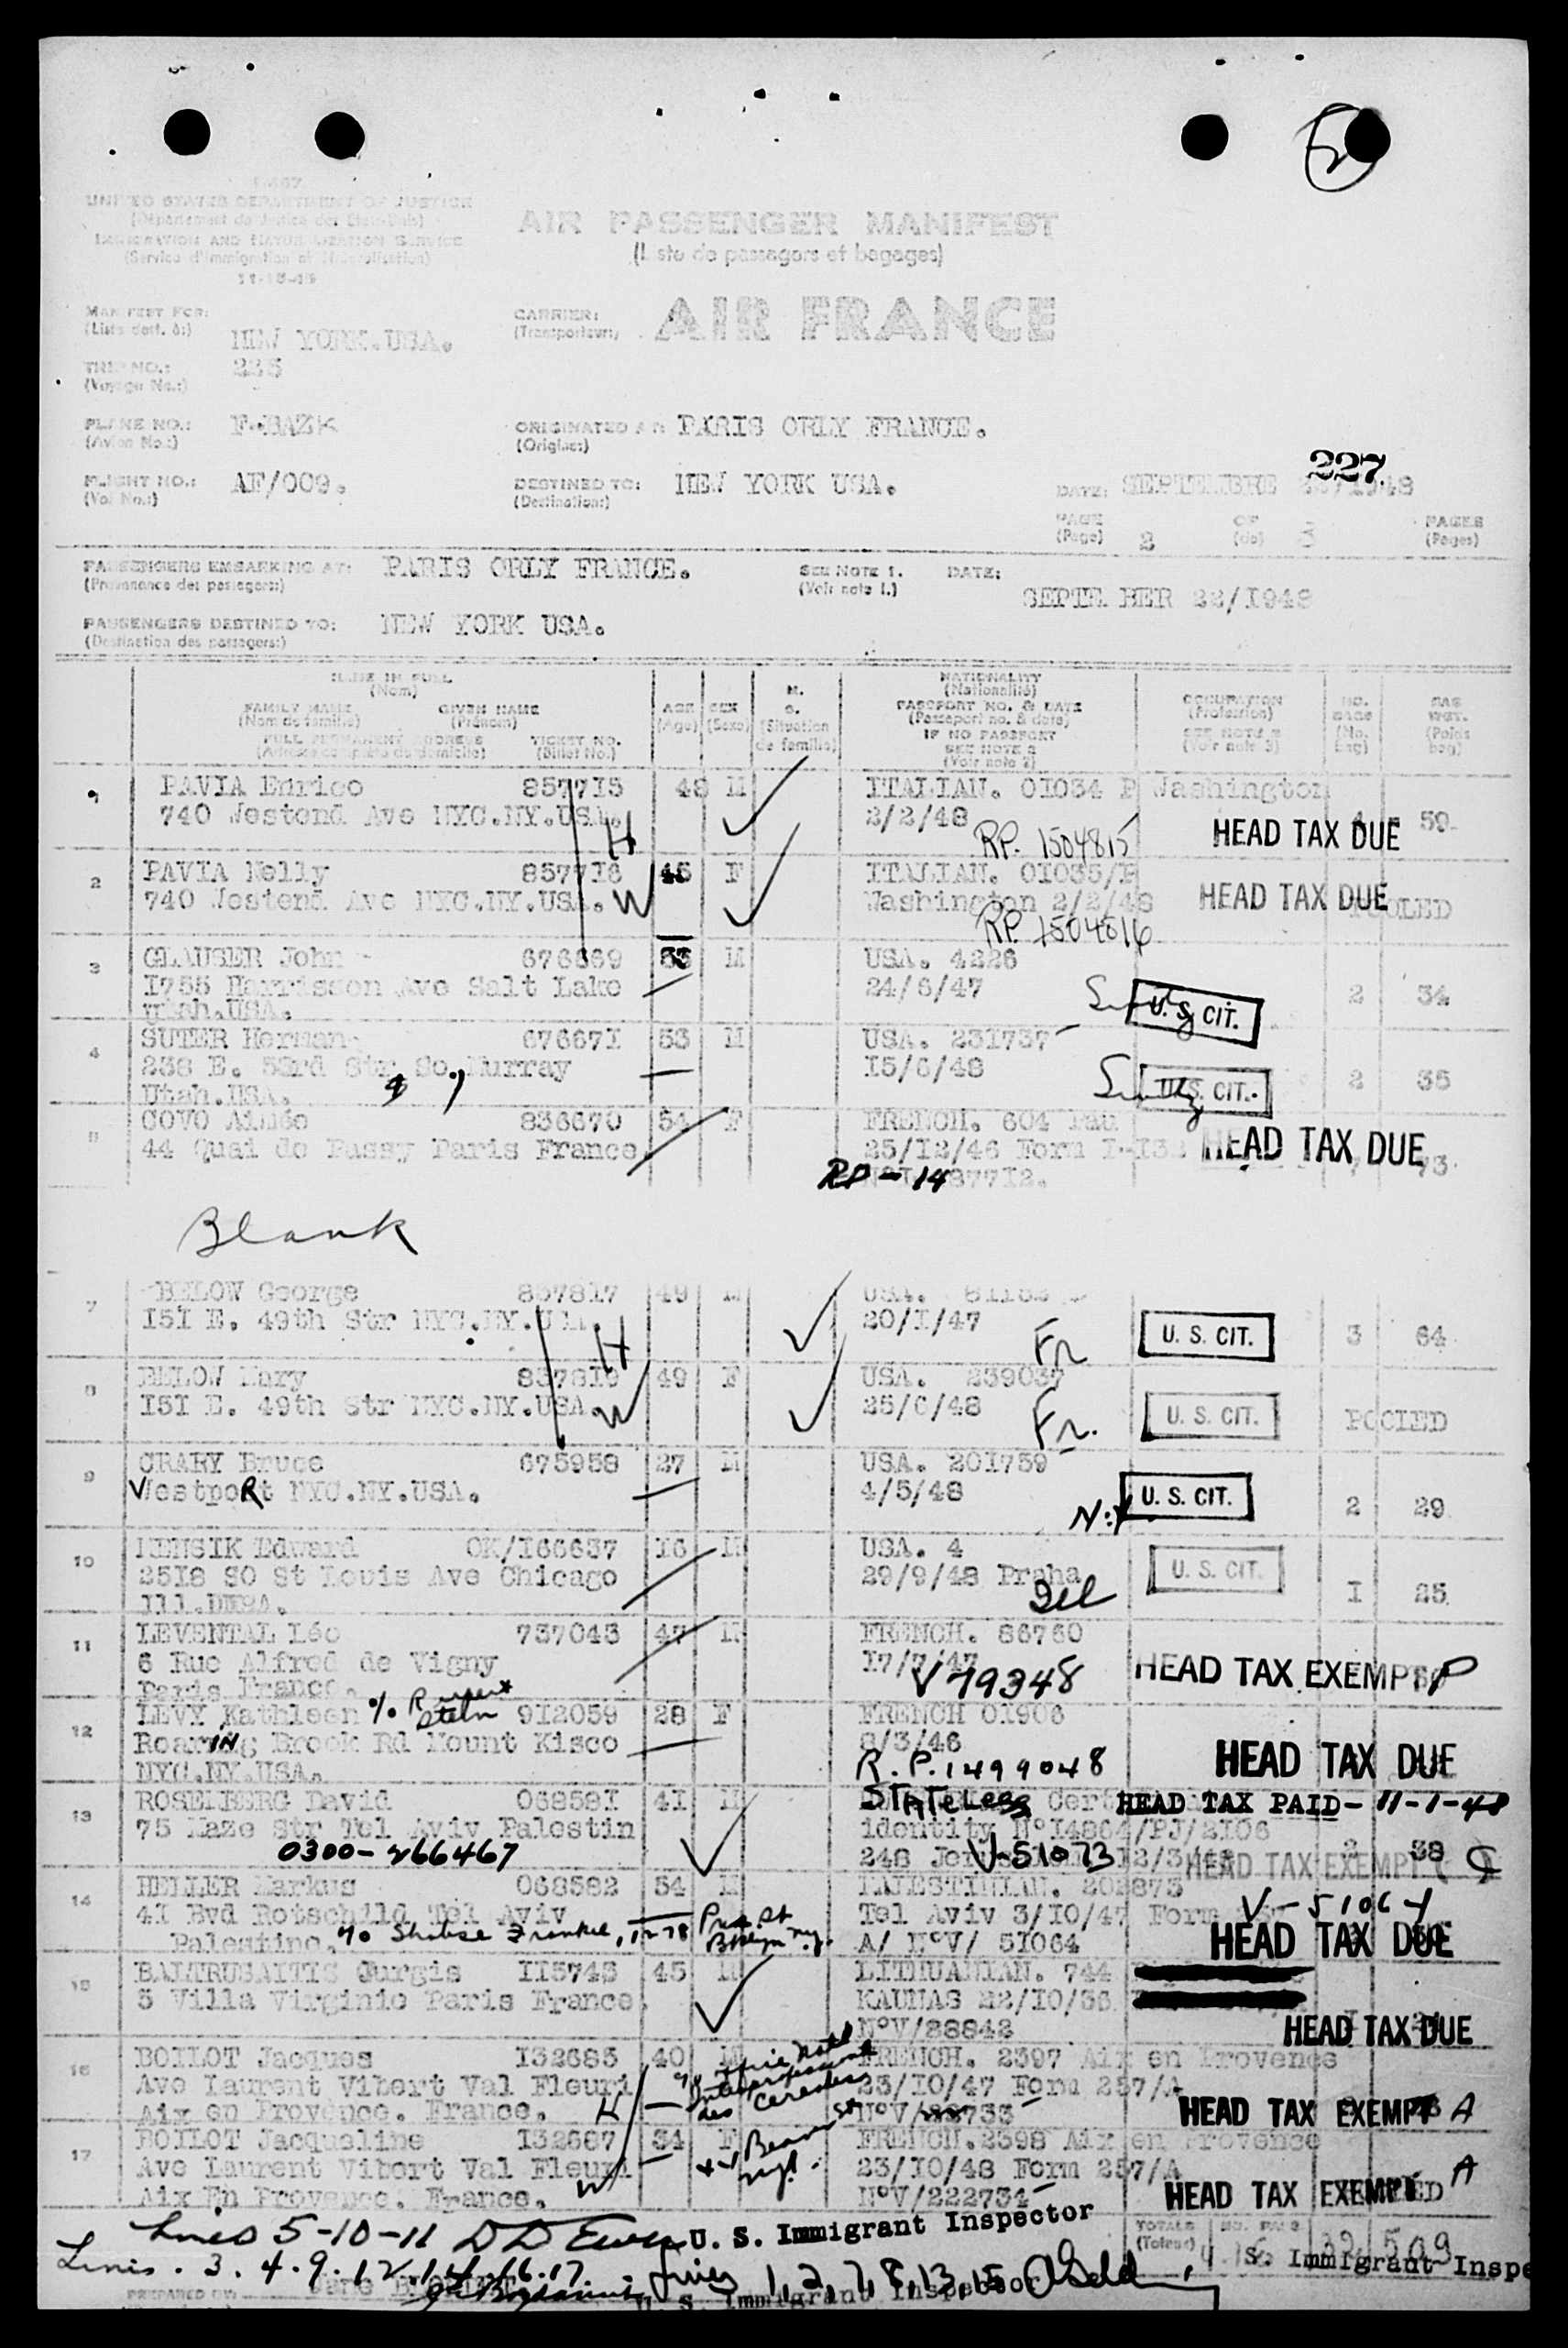 UNITED STATES DEPARTMENT OF JUSTICE
(Département de Justice des Etats-Unis)
IMMIGRATION AND NATURALIZATION SERVICE
(Service d'Immigration et Naturalisation)
AIR PASSENGER MANIFEST
(Liste de passagers et bagages)
MANIFEST FOR:
(Liste dest. à:)
NEW YORK.USA.
CARRIER:
(Transporteur:)
AIR FRANCE
TRIP NO.:
(Voyage No.:)
PLANE NO.:
(Avion No.:)
F.BAZK
ORIGINATED AT:
(Origine:)
PARIS ORLY FRANCE.
227.
FLIGHT NO.:
(Vol No.:)
AF/009.
DESTINED TO:
(Destination:)
NEW YORK USA.
DATE: SEPTEMBRE
PAGE
(Page)
OF
(de)
PAGES
(Pages)
PASSENGERS EMBARKING AT:
(Provenance des passagers:)
PARIS ORLY FRANCE.
SEE NOTE 1.
(Voir note 1.)
DATE:
SEPTEMBER 22/I948
PASSENGERS DESTINED TO:
(Destination des passagers:)
NEW YORK USA.
NAME IN FULL
(Nom)
FAMILY NAME GIVEN NAME
(Nom de famille) (Prénom)
FULL PERMANENT ADDRESS TICKET NO.
(Adresse complète du domicile) (Billet No.)
AGE
(Age)
SEX
(Sexe)
M.
S.
(Situation
de famille)
NATIONALITY
(Nationalité)
PASSPORT NO. & DATE
(Passeport no. & date)
IF NO PASSPORT
SEE NOTE 2
(Voir note 2)
OCCUPATION
(Profession)
SEE NOTE 3
(Voir note 3)
NO.
BAGS
(No.
bag)
BAG
WGT.
(Poids
bag)
PAVIA Enrico 8577I5 48 M ITALIAN. 0I034 P Washington
740 Westend Ave NYC.NY.USA. H 2/2/48 HEAD TAX DUE 59
RP. 1504815
2 PAVIA Nelly 8577I6 45 F ITALIAN. 0I035/P
740 Westend Ave NYC.NY.USA. W Washington 2/2/48 HEAD TAX DUE POOLED
RP 1504816
3 GLAUSER John 676669 M USA. 4226
I755 Harrisson Ave Salt Lake 24/6/47 U. S. CIT. 2 34
Utah.USA.
4 SUTER Herman 67667I 53 M USA. 23I737
238 E. 53rd Str So.Murray I5/6/48 U.S. CIT. 2 35
Utah.USA.
5 COVO Aimée 836670 54 F FRENCH. 604 Pau
44 Quai de Passy Paris France. 25/I2/46 Form I-I32 HEAD TAX DUE 73
RP - 14
Blank
7 BELOW George 8578I7 49 M USA.
I5I E. 49th Str NYC.NY.USA. H 20/I/47 Fr U. S. CIT. 3 64
8 BELOW Mary 49 F USA. 239037
I5I E. 49th Str NYC.NY.USA. W 25/6/48 Fr. U. S. CIT. POOLED
9 CRARY Bruce 675958 27 M USA. 20I759
Westport NYC.NY.USA. 4/5/48 N.Y U. S. CIT. 2 29
10 Edward OK/I66637 I6 M USA. 4
25I8 SO St Louis Ave Chicago 29/9/48 Praha U. S. CIT. I 25
11 LEVENTAL Léo 737043 47 M FRENCH. 86760
6 Rue Alfred de Vigny I7/7/47
Paris France. V 79348 HEAD TAX EXEMPT P
12 LEVY Kathleen % Rupert Stein 9I2059 28 F FRENCH 0I906
Roaring Brook Rd Mount Kisco 8/3/46
NYC.NY.USA. R.P. 1499048 HEAD TAX DUE
13 ROSENBERG David 06858I 4I M STATELess HEAD TAX PAID - 11-1-48
75 Maze Str Tel Aviv Palestin identity N°I4864/PJ/2I06
0300-266467 V-51073 HEAD TAX EXEMPT 2 38
14 HELLER Markus 068582 54 M PALESTINIAN. 202873
4I Bvd Rotschild Tel Aviv Tel Aviv 3/I0/47 Form V-51064
Palestine. A/ N°V/ 5I064 HEAD TAX DUE
15 BALTRUSAITIS Jurgis II5743 45 M LITHUANIAN. 744
5 Villa Virginie Paris France. KAUNAS 22/I0/36
N°V/28842 HEAD TAX DUE
16 BOILOT Jacques I32685 40 M FRENCH. 2397 Aix en Provence
Ave Laurent Vibert Val Fleuri 23/I0/47 Form 257/A
Aix en Provence. France. H HEAD TAX EXEMPT A
17 BOILOT Jacqueline I32687 34 F FRENCH.2398 Aix en Provence
Ave Laurent Vibert Val Fleuri 23/I0/48 Form 257/A
Aix En Provence. France. W N°V/222734 HEAD TAX EXEMPT A
Lines 5-10-11 U. S. Immigrant Inspector
TOTALS
(Totaux)
Lines. 3. 4. 9. 12. 14. 16. 17.
Lines 1, 2, 7, 8, 13, 15
U. S. Immigrant Inspector
PREPARED BY: